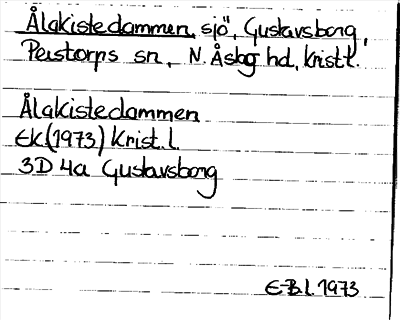 Ålakistedammen, sjö, Gustavsborg,
Perstorps sn, N. Åsbo hd, Krist. l.
Ålakistedammen
EK (1973) Krist. l.
3D 4a Gustavsborg
E-B.l. 1973